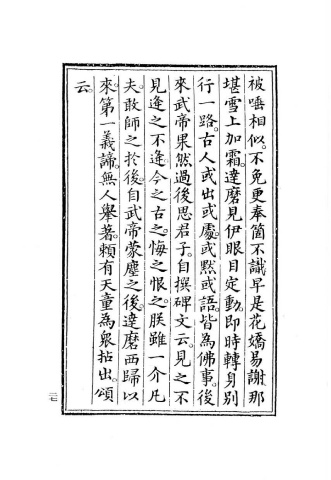 被唾相似。不免更奉箇不識早是花嬌易謝那
堪雪上加霜。達磨見伊眼目定動。即時轉身別
行一路。古人或出或處。或默或語。皆為佛事。後
來武帝果然過後思君子。自撰碑文云。見之不
見逢之不逢。今之古之。悔之恨之。朕雖一介凡
夫敢師之於後。自武帝蒙塵之後。達磨西歸以
來。第一義諦。無人舉著。賴有天童為眾拈出。頌
云。
二七